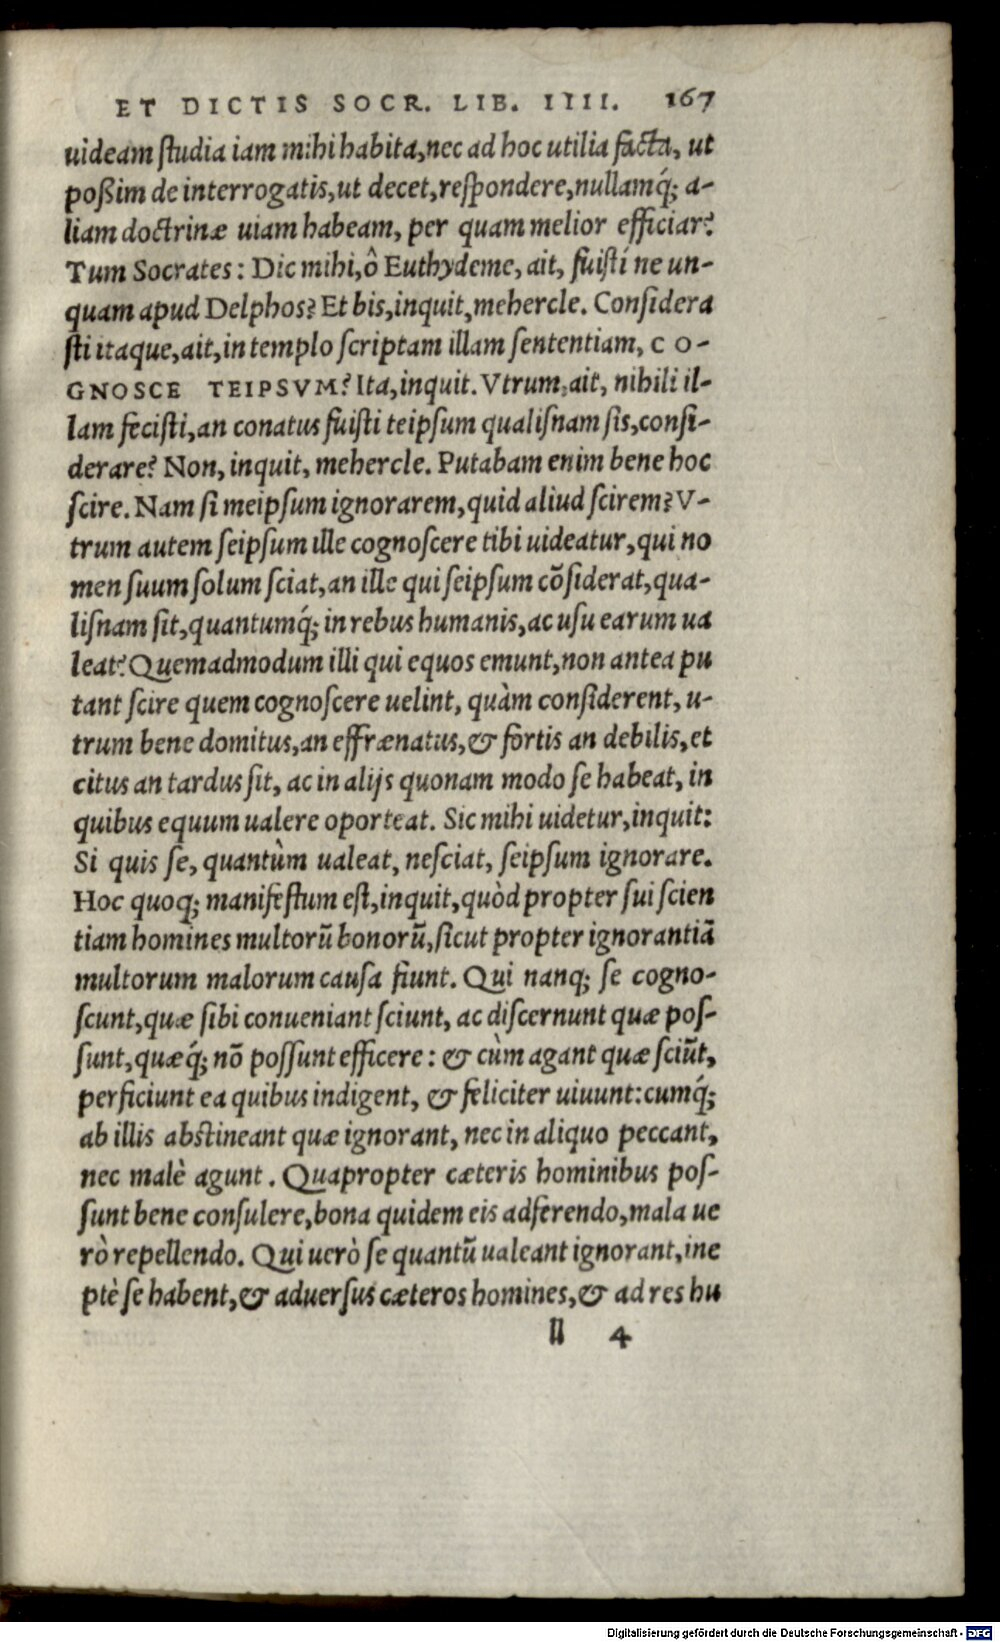 ET DICTIS SOCR. LIB. IIII. 167
uideam ſtudia iam mihi habita, nec ad hoc utilia facta, ut
poßim de interrogatis, ut decet, reſpondere, nullamq́; a-
liam doctrinæ uiam habeam, per quam melior efficiar?
Tum Socrates: Dic mihi, ô Euthydeme, ait, fuiſti ne un-
quam apud Delphos? Et bis, inquit, mehercle. Conſidera
ſti itaque, ait, in templo ſcriptam illam ſententiam, CO-
GNOSCE TEIPSVM? Ita, inquit. Vtrum, ait, nihili il-
lam feciſti, an conatus fuiſti teipſum qualiſnam ſis, conſi-
derare? Non, inquit, mehercle. Putabam enim bene hoc
ſcire. Nam ſi meipſum ignorarem, quid aliud ſcirem? V-
trum autem ſeipſum ille cognoſcere tibi uideatur, qui no
men ſuum ſolum ſciat, an ille qui ſeipſum cõſiderat, qua-
liſnam ſit, quantumq́; in rebus humanis, ac uſu earum ua
leat? Quemadmodum illi qui equos emunt, non antea pu
tant ſcire quem cognoſcere uelint, quàm conſiderent, u-
trum bene domitus, an effrænatus, & fortis an debilis, et
citus an tardus ſit, ac in alijs quonam modo ſe habeat, in
quibus equum ualere oporteat. Sic mihi uidetur, inquit:
Si quis ſe, quantùm ualeat, neſciat, ſeipſum ignorare.
Hoc quoq; manifeſtum eſt, inquit, quòd propter ſui ſcien
tiam homines multorũ bonorũ, ſicut propter ignorantiã
multorum malorum cauſa fiunt. Qui nanq; ſe cogno-
ſcunt, quæ ſibi conueniant ſciunt, ac diſcernunt quæ poſ-
ſunt, quæq́; nõ poſſunt efficere: & cùm agant quæ ſciũt,
perficiunt ea quibus indigent, & feliciter uiuunt: cumq́;
ab illis abſtineant quæ ignorant, nec in aliquo peccant,
nec malè agunt. Quapropter cæteris hominibus poſ-
ſunt bene conſulere, bona quidem eis adferendo, mala ue
rò repellendo. Qui uerò ſe quantũ ualeant ignorant, ine
ptè ſe habent, & aduerſus cæteros homines, & ad res hu
ll 4
Digitalisierung gefördert durch die Deutsche Forschungsgemeinschaft - DFG